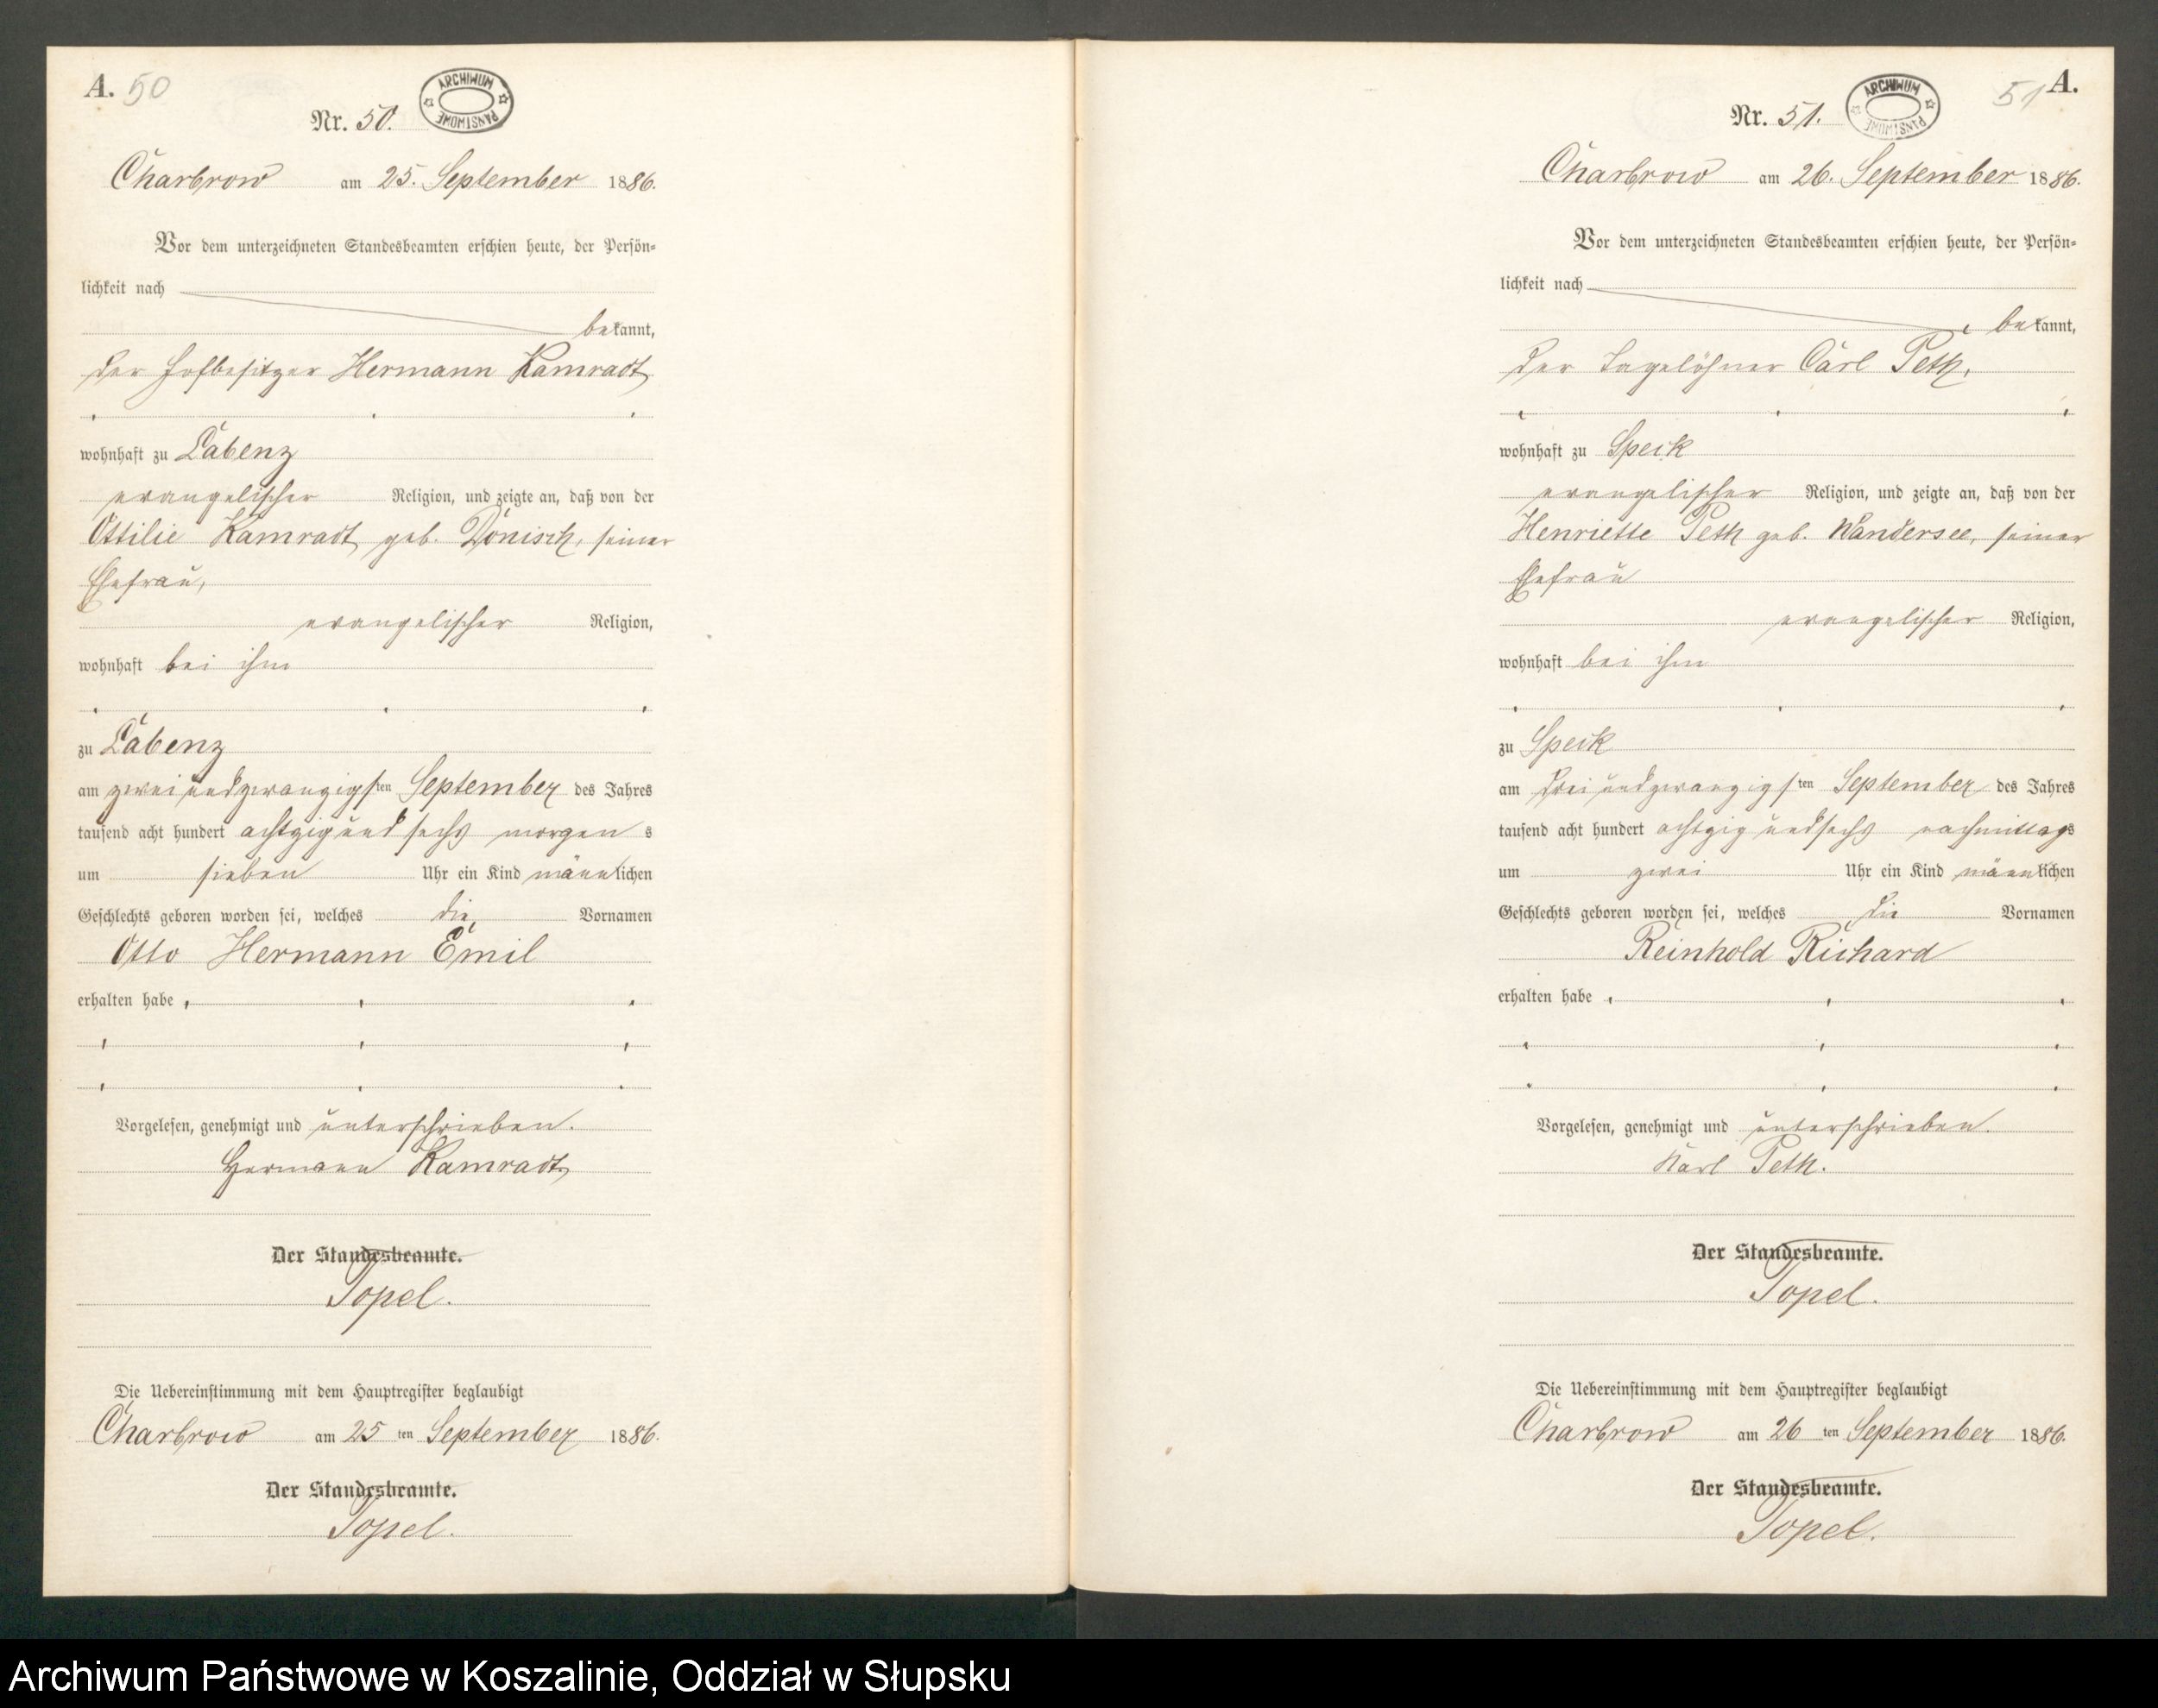 A. 50
Nr. 50.
ARCHIWUM PAŃSTWOWE
Charbrow am 25. September 1886.
Vor dem unterzeichneten Standesbeamten erschien heute, der Persön-
lichkeit nach
bekannt,
der Hofbesitzer Hermann Kamradt
wohnhaft zu Labenz
evangelischer Religion, und zeigte an, daß von der
Ottilie Kamradt geb. Dönisch, seiner
Ehefrau,
evangelischer Religion,
wohnhaft bei ihm
zu Labenz
am zweiundzwanzigsten September des Jahres
tausend acht hundert achtzig und sechs morgens
um sieben Uhr ein Kind männlichen
Geschlechts geboren worden sei, welches die Vornamen
Otto Hermann Emil
erhalten habe
Vorgelesen, genehmigt und unterschrieben.
Hermann Kamradt
Der Standesbeamte.
Topel.
Die Uebereinstimmung mit dem Hauptregister beglaubigt
Charbrow am 25ten September 1886.
Der Standesbeamte.
Topel.
51 A.
Nr. 51.
ARCHIWUM PAŃSTWOWE
Charbrow am 26. September 1886.
Vor dem unterzeichneten Standesbeamten erschien heute, der Persön-
lichkeit nach
bekannt,
der Tagelöhner Carl Peth,
wohnhaft zu Speck
evangelischer Religion, und zeigte an, daß von der
Henriette Peth geb. Wandersee, seiner
Ehefrau
evangelischer Religion,
wohnhaft bei ihm
zu Speck
am dreiundzwanzigsten September des Jahres
tausend acht hundert achtzig und sechs nachmittags
um zwei Uhr ein Kind männlichen
Geschlechts geboren worden sei, welches die Vornamen
Reinhold Richard
erhalten habe
Vorgelesen, genehmigt und unterschrieben.
Karl Peth.
Der Standesbeamte.
Topel.
Die Uebereinstimmung mit dem Hauptregister beglaubigt
Charbrow am 26ten September 1886.
Der Standesbeamte.
Topel.
Archiwum Państwowe w Koszalinie, Oddział w Słupsku